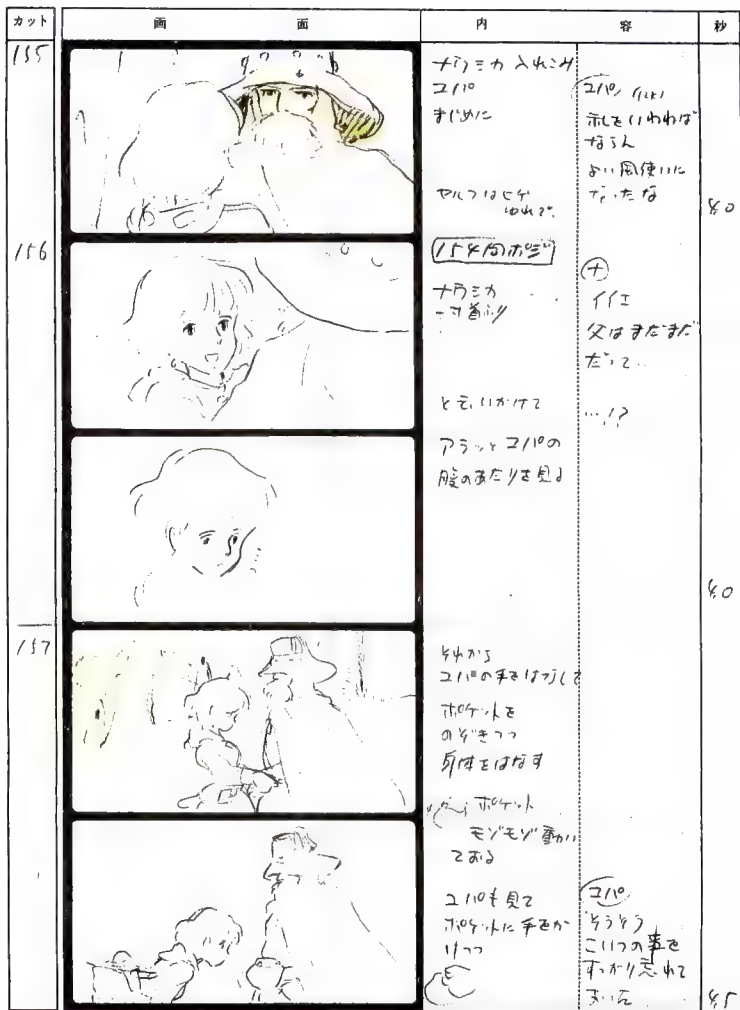 カット 画面 内容 秒
155
ナウシカ 入れこみ
ユパ
まじめに
セルフはヒゲ
ゆれで。
ユパ
礼をいわねば
ならん
よい風使いに
なったな
4.0
156
154同ポジ
ナウシカ
一寸首ふり
と言いかけて
アラッとユパの
腹のあたりを見る
ナ
イイエ
父はまだまだ
だって..
…!?
4.0
157
それから
ユパの手をはなして
ポケットを
のぞきつつ
身体をはなす
ポケット
モゾモゾ動い
ておる
ユパも見て
ポケットに手をか
けつつ
ユパ
そうそう
こいつの事を
すっかり忘れて
おった
4.5